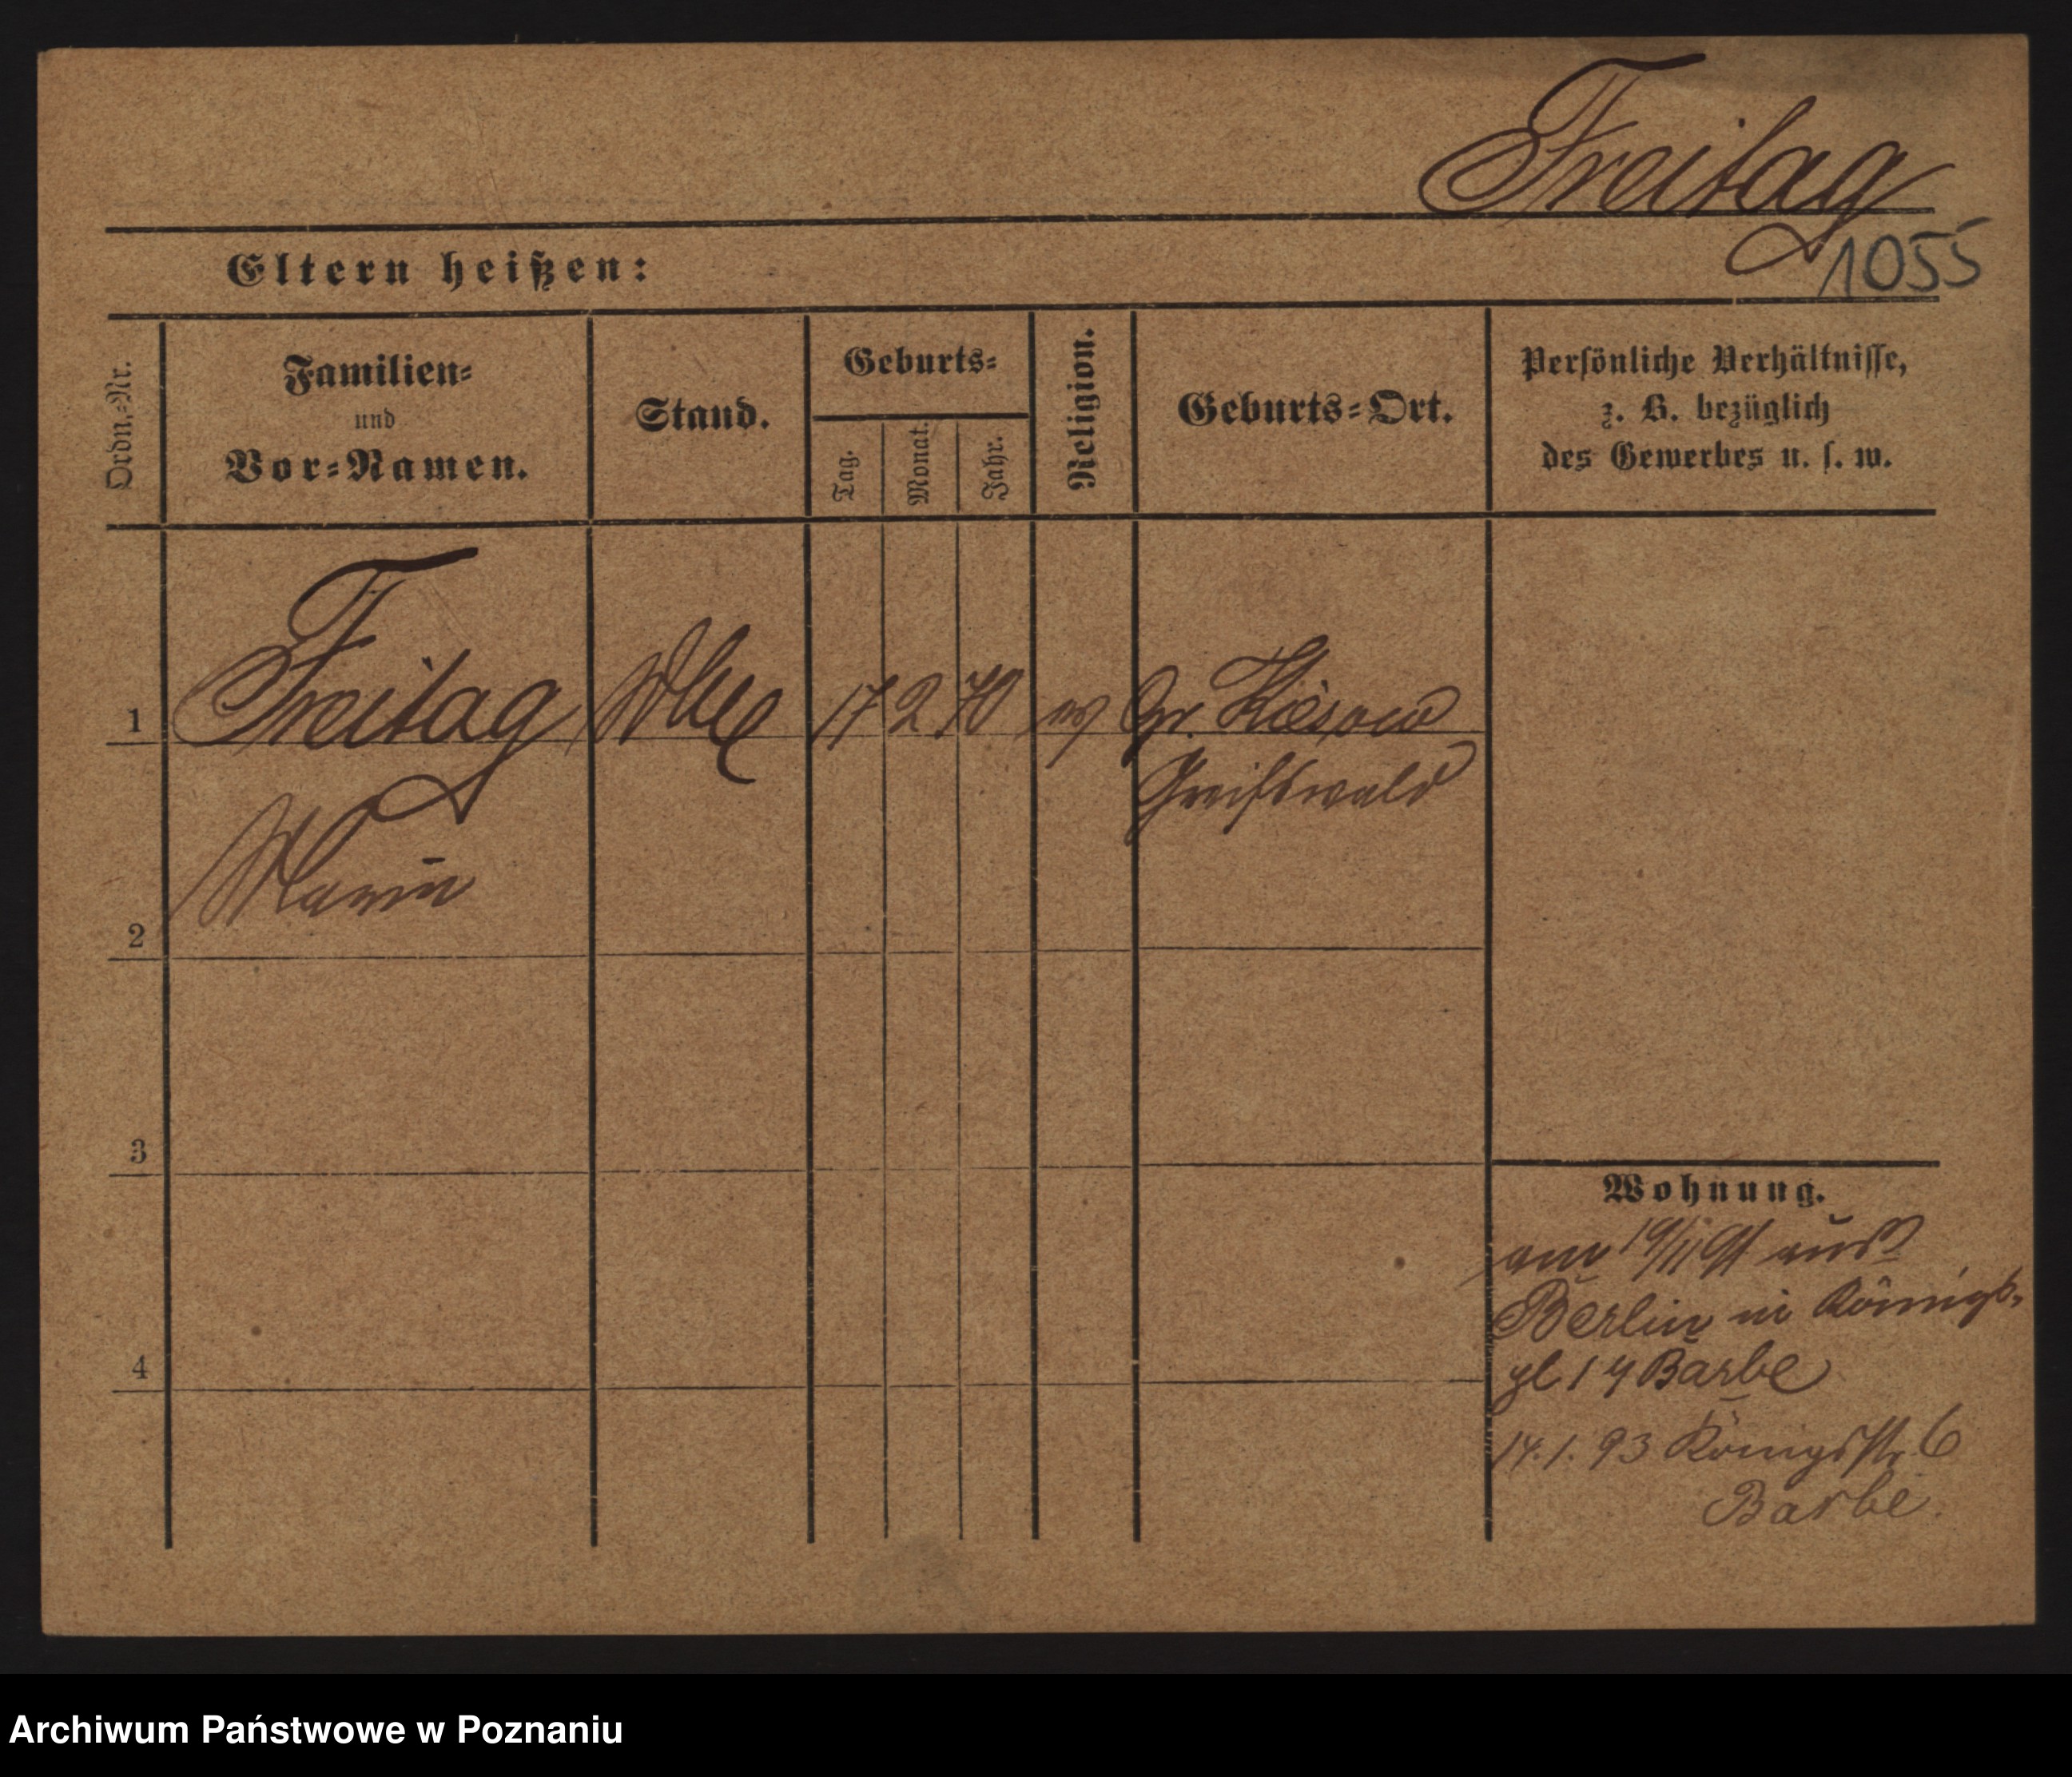 Freitag
1055
Eltern heißen:
Ordn.-Nr.
Familien-
und
Vor-Namen.
Stand.
Geburts-
Tag.
Monat.
Jahr.
Religion.
Geburts-Ort.
Persönliche Verhältnisse,
z. B. bezüglich
des Gewerbes u. s. w.
1 Freitag 17 2 70 ev Gr. Kiesow
Greifswald
Marie
2
3
4
Wohnung.
am 19/11 91 aus
Berlin in Königs-
pl 14 Barbe
14.1.93 Königsstr. 6
Barbe.
Archiwum Państwowe w Poznaniu